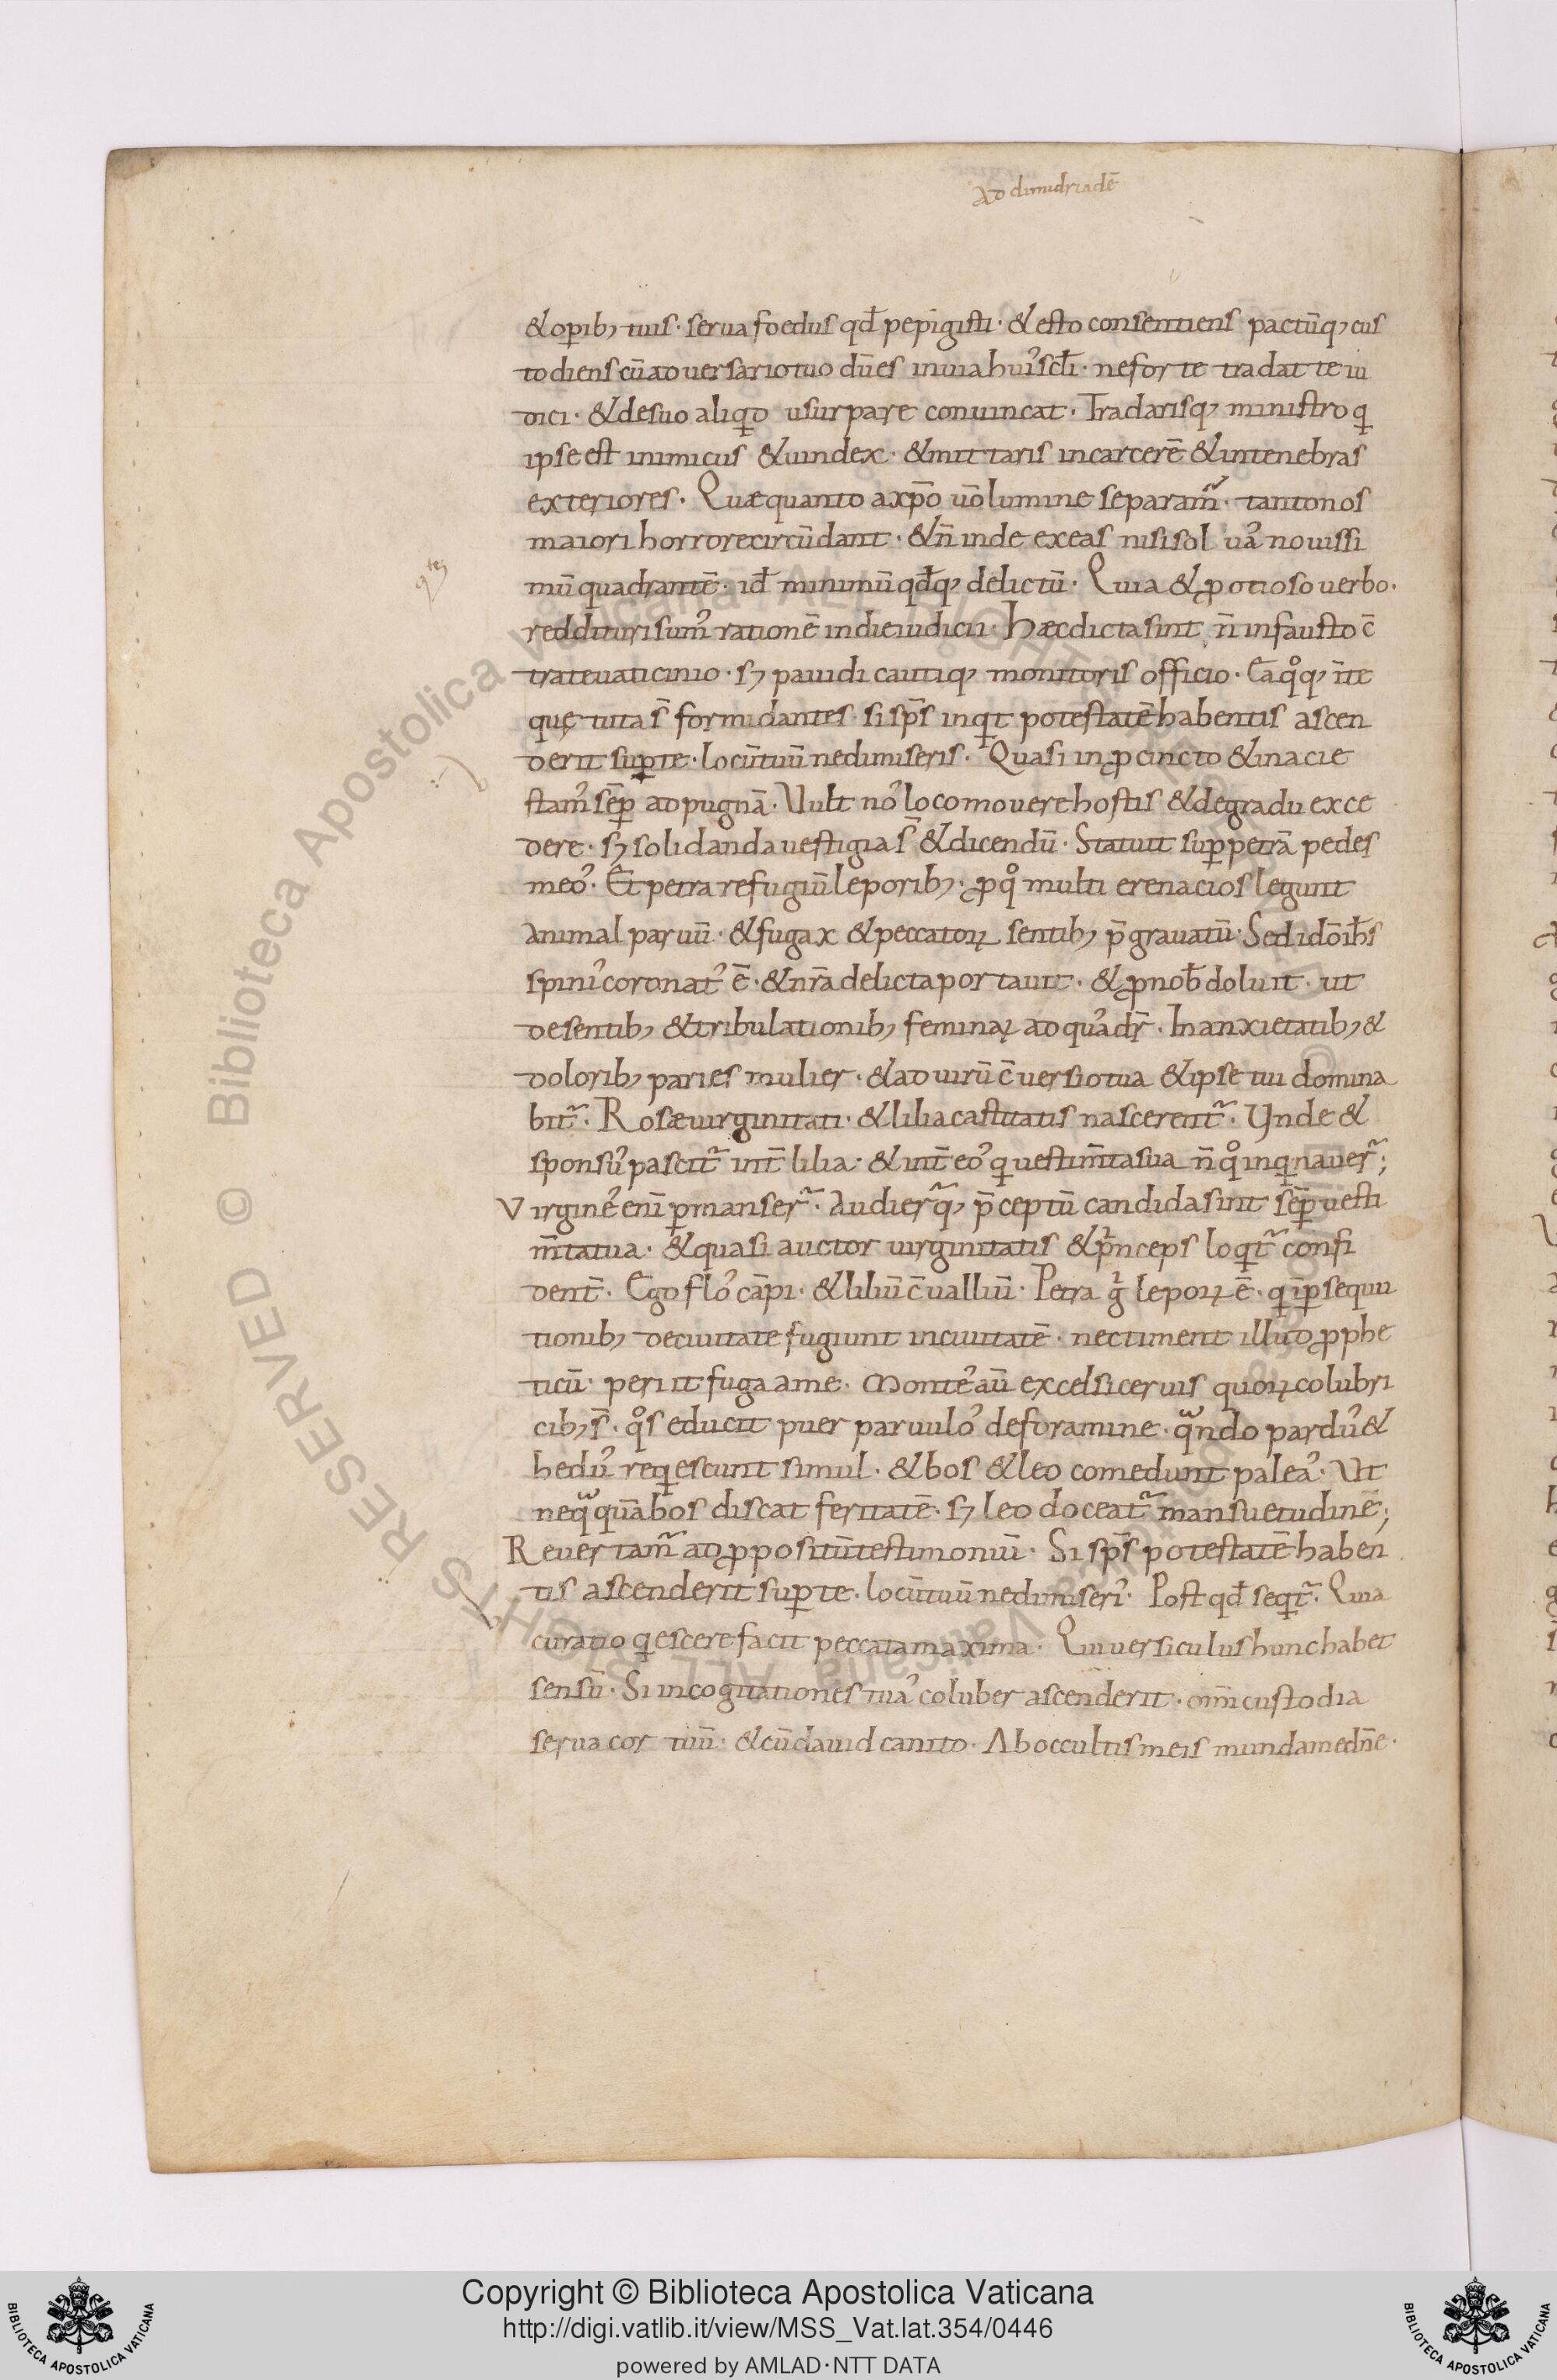 Ad dimidriadē
&opib; tuis· serua foedus qđ pepigisti· & esto consentiens pactūq; cus
todiens cū aduersario tuo dū es in uia hui᾽ sc̄li· ne forte tradat te iu
dici· & de suo aliqd usurpare conuincat· Tradarisq; ministro q
ipse est inimicus & uindex· & mittaris in carcerē & in tenebras
exteriores· Quæ quanto a xp̄o uō lumine separam̃· tanto nos
maiori horrore circūdant· & n̄ inde exeas nisi sol uā nouissi
mū quadrantē· id̄ minimū qđq; delictū· Quia & ꝓ otioso uerbo·
reddituri sum᾽ rationē in die iudicii· Hæc dicta sint n̄ infausto c̄
tra te uaticinio· sꝫ pauidi cautiq; monitoris officio· Ea qͦq; īte
quę tuta s̄ formidantes· si sp̄s inqt potestatē habentis ascen
derit sup te· locū tuū ne dimiseris· Quasi in ꝓcinctu & in acie
stam᾽ sēp ad pugnā· Uult no᾽ loco mouere hostis & de gradu exce
dere· sꝫ solidanda uestigia s̄ & dicendū· Statuit sup petrā pedes
meo᾽· Et petra refugiū leporib;· ꝓ qͦ multi erenacios legunt
Animal paruū· & fugax & peccatoꝝ sentib; p̄grauatū· Sed idō ih̄s
spini᾽ coronat᾽ ē· & nr̄a delicta portauit· & ꝓ nob̄ doluit· ut
de sentib; & tribulationib; feminaꝝ ad quᾱ dr̄· In anxietatib; &
dolorib; paries mulier· & ad uirū c̄uersio tua & ipse tui domina
bit̃· Rosæ uirginitati· & lilia castitatis nascerent̃· Unde &
sponsu᾽ pascit̃ int̄ lilia· & int̄ eo᾽ q uestim̄ta sua n̄ qͦinqnauer̃;
Virgine᾽ enī pmanser̃· Audier̃q; p̄ceptū candida sint sēp uesti
m̄ta tua· & quasi auctor uirginitatis & pͥnceps loqt̃ confi
dent̄· Ego flo᾽ cāpi· & liliū c̄ualliū· Petra gͥ lepoꝝ ē· q ī psequu
tionib; de ciuitate fugiunt in ciuitatē· nec timent illud ꝓphe
ticū· periit fuga a me· Monte᾽ aū excelsi ceruis quoꝝ colubri
cib; s̄· qͦs educit puer paruulo᾽ de foramine· qͣndo pardu᾽ &
hedu᾽ reqescunt simul· & bos & leo comedunt palea᾽· Ut
neqͣquā bos discat feritatē· sꝫ leo doceat̃ mansuetudinē;
Reuertam̃ ad ꝓpositū testimoniū· Si sp̄s potestatē haben
tis ascenderit sup te· locū tuū ne dimiseri᾽· Post qđ seqt̃· Quia
curatio qescere facit peccata maxima· Qui uersiculus hunc habet
sensū· Si in cogitationes tua᾽ coluber ascenderit· omī custodia
serua cor tuū· & cū dauid canito· Ab occultis meis munda me dn̄e·
Copyright © Biblioteca Apostolica Vaticana
http://digi.vatlib.it/view/MSS_Vat.lat.354/0446
powered by AMLAD·NTT DATA